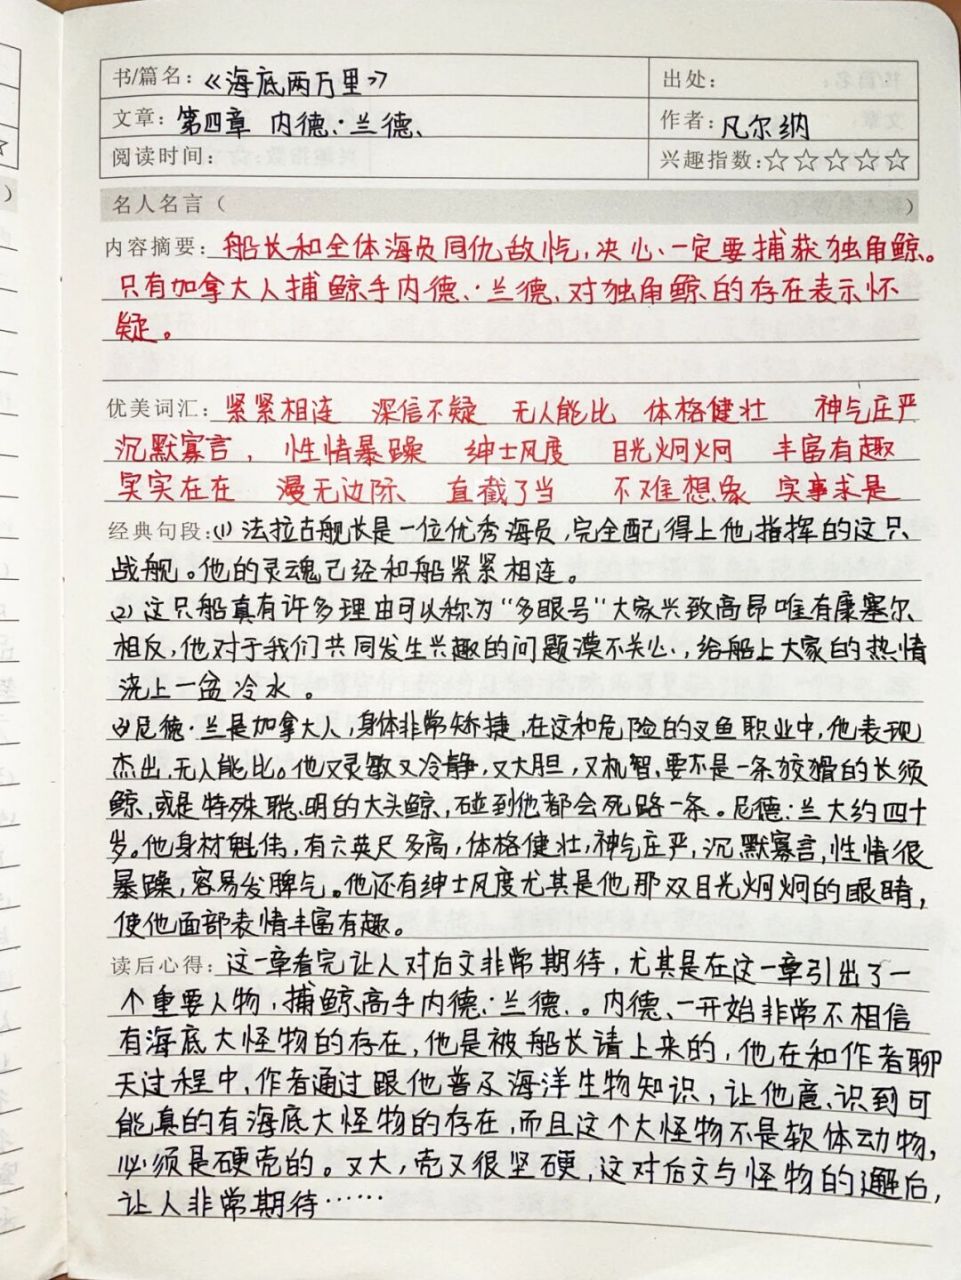 书/篇名：《海底两万里》 出处：
文章：第四章 内德·兰德 作者：凡尔纳
阅读时间： 兴趣指数：☆☆☆☆☆
名人名言（ ）
内容摘要：船长和全体海员同仇敌忾，决心一定要捕获独角鲸。
只有加拿大人捕鲸手内德·兰德对独角鲸的存在表示怀
疑。
优美词汇：紧紧相连 深信不疑 无人能比 体格健壮 神气庄严
沉默寡言， 性情暴躁 绅士风度 目光炯炯 丰富有趣
实实在在 漫无边际 直截了当 不难想象 实事求是
经典句段：(1) 法拉古舰长是一位优秀海员，完全配得上他指挥的这只
战舰。他的灵魂已经和船紧紧相连。
(2) 这只船真有许多理由可以称为“多眼号”大家兴致高昂唯有康塞尔
相反，他对于我们共同发生兴趣的问题漠不关心，给船上大家的热情
浇上一盆冷水。
(3)尼德·兰是加拿大人，身体非常矫捷，在这种危险的叉鱼职业中，他表现
杰出，无人能比。他又灵敏又冷静，又大胆，又机智，要不是一条狡猾的长须
鲸，或是特殊聪明的大头鲸，碰到他都会死路一条。尼德·兰大约四十
岁。他身材魁伟，有六英尺多高，体格健壮，神气庄严，沉默寡言，性情很
暴躁，容易发脾气。他还有绅士风度尤其是他那双目光炯炯的眼睛，
使他面部表情丰富有趣。
读后心得：这一章看完让人对后文非常期待，尤其是在这一章引出了一
个重要人物，捕鲸高手内德·兰德。内德一开始非常不相信
有海底大怪物的存在，他是被船长请上来的，他在和作者聊
天过程中，作者通过跟他普及海洋生物知识，让他意识到可
能真的有海底大怪物的存在，而且这个大怪物不是软体动物，
必须是硬壳的。又大，壳又很坚硬，这对后文与怪物的邂后，
让人非常期待……